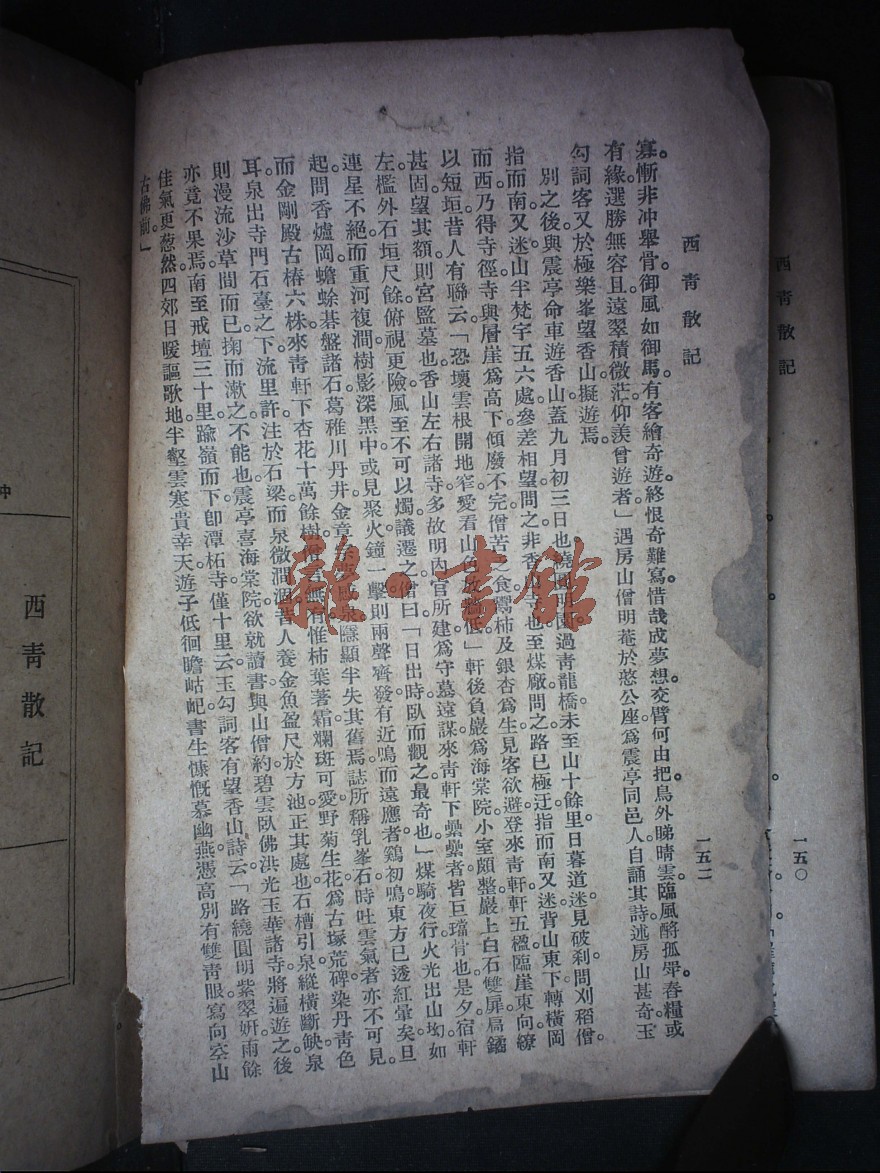 西青散記
一五〇
西青散記
一五二
寡慚非冲舉骨御風如御馬。有客繪奇遊。終恨奇難寫。惜哉成夢想。交臂何由把。鳥外睇晴雲。臨風酹孤斝。春糧或
有緣。選勝無容且。遠翠積微茫。仰羨曾遊者」遇房山僧明菴於憨公座。爲震亭同邑人。自誦其詩。述房山甚奇。玉
勾詞客又於極樂峯望香山。擬遊焉。
別之後。與震亭命車遊香山。蓋九月初三日也。繞圓明園。過青龍橋。未至山十餘里。日暮道迷。見破剎。問刈稻僧。
指而南。又迷。山半梵宇五六處。參差相望。問之。非香山寺也。至煤廠。問之。路已極迂。指而南。又迷。背山東下。轉橫岡
而西。乃得寺徑。寺與層崖爲高下。傾廢不完。僧苦乏食。鬻柿及銀杏爲生。見客欲避。登來青軒。軒五楹。臨崖東向。繚
以短垣。昔人有聯云。「恐壞雲根開地窄。愛看山色放牆低」軒後負巖。爲海棠院。小室頗整。巖上白石雙扉。扃鐍
甚固。望其額。則宮監墓也。香山左右諸寺。多故明內官所建。爲守墓遠謀。來青軒下纍纍者。皆巨璫骨也。是夕宿軒
左。檻外石垣尺餘。俯視更險。風至不可以燭。議遷之。僧曰。「日出時臥而觀之最奇也」煤騎夜行。火光出山坳。如
連星不絕。而重河複澗。樹影深黑中。或見聚火。鐘一擊則兩聲齊發。有近鳴而遠應者。鷄初鳴。東方已透紅暈矣。旦
起。問香爐岡。蟾蜍碁盤諸石。葛稚川丹井。金章宗夢感泉。隱顯半失其舊焉。誌所稱乳峯石。時吐雲氣者。亦不可見。
而金剛殿古椿六株。來青軒下杏花十萬餘樹。僧言無有。惟柿葉著霜。斕斑可愛。野菊生花。爲古塚荒碑染丹青色
耳。泉出寺門石臺之下。流里許。注於石梁。而泉微澗涸。昔人養金魚盈尺於方池。正其處也。石槽引泉。縱橫斷缺。泉
則漫流沙草間而已。掬而漱之不能也。震亭喜海棠院。欲就讀書。與山僧約。碧雲臥佛洪光玉華諸寺。將遍遊之。後
亦竟不果焉。南至戒壇三十里。踰嶺而下。卽潭柘寺。僅十里云。玉勾詞客有望香山詩云。「路繞圓明紫翠妍。雨餘
佳氣更葱然。四郊日暖謳歌地。半壑雲寒貴幸天。遊子低徊瞻岵屺。書生慷慨慕幽燕。憑高別有雙青眼。寫向空山
古佛前」
西青散記